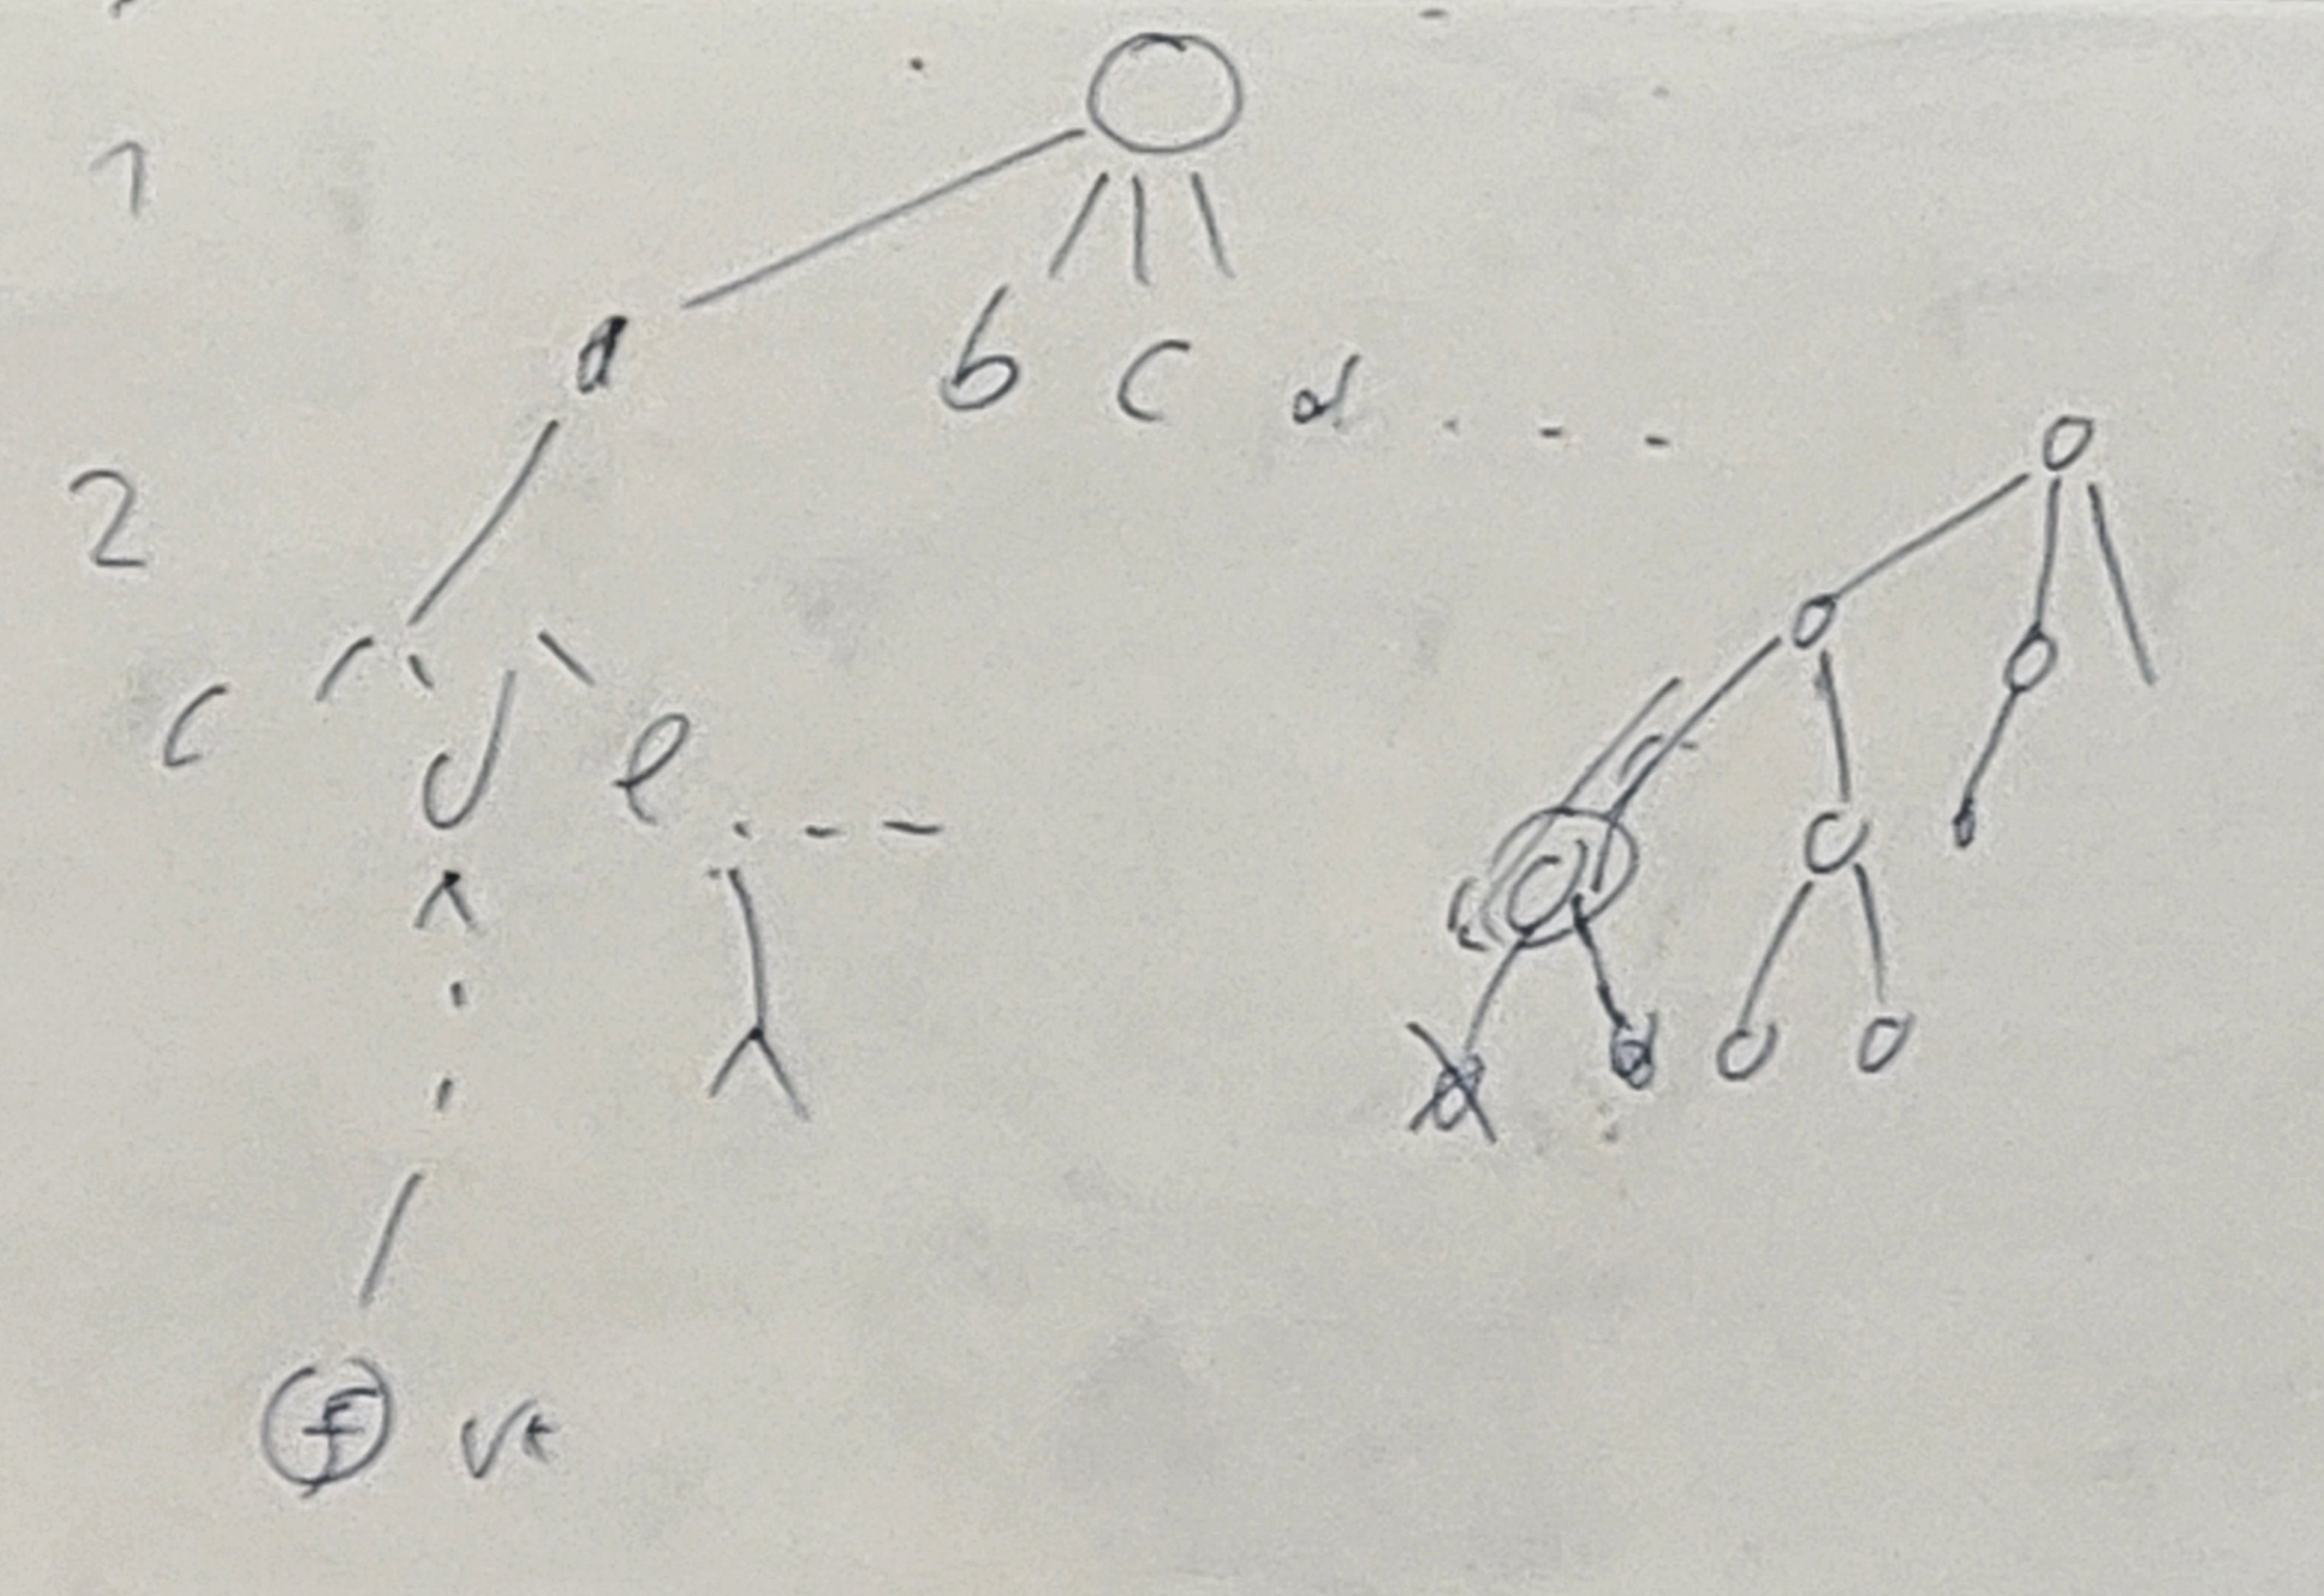 1
a b c d . - -
2
c d e . - - -
f